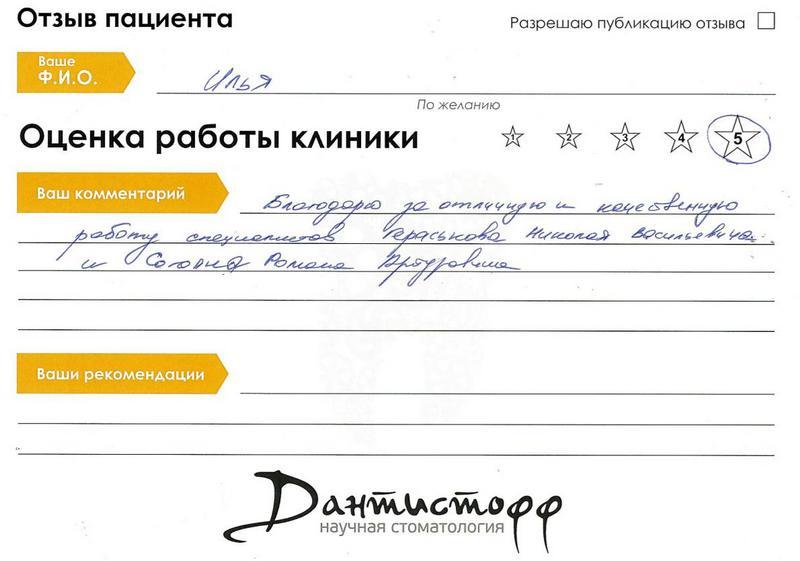 Отзыв пациента
Разрешаю публикацию отзыва
Ваше
Ф.И.О.
Илья
По желанию
Оценка работы клиники
1 2 3 4 5
Ваш комментарий
Благодарю за отличную и качественную
работу специалистов Гераськова Николая Васильевича
и Романа Артуровича
Ваши рекомендации
Дантистофф
научная стоматология